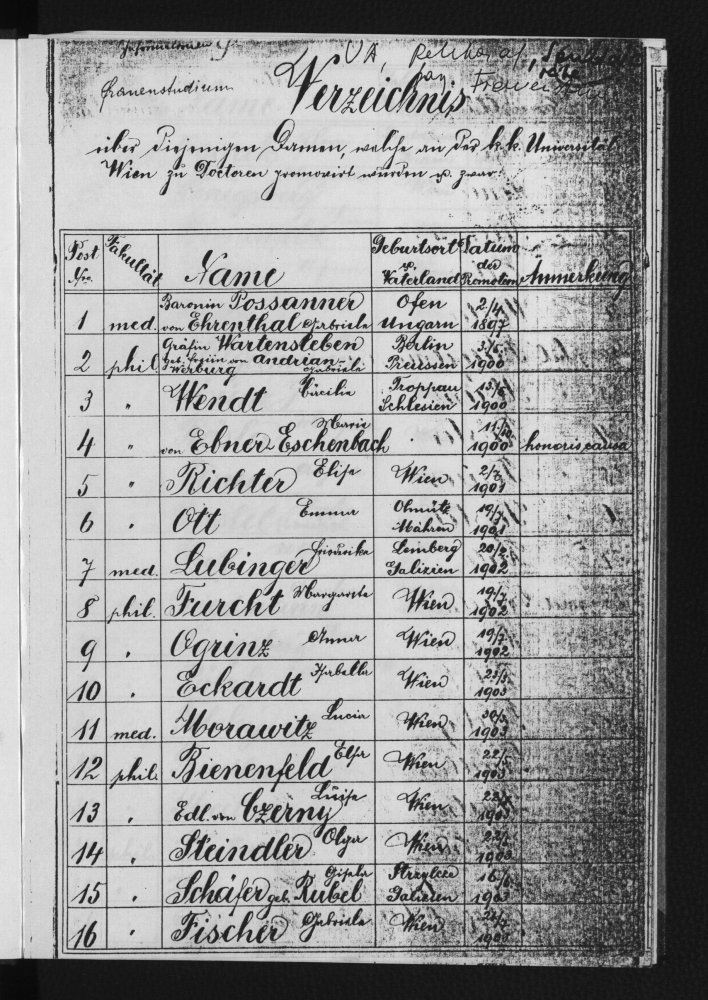 UA,
Frauenstudium
Verzeichnis
über diejenigen Damen, welche an der k. k. Universität
Wien zu Doctoren promovirt wurden u. zwar:
Post Nro. Fakultät Name Geburtsort u. Vaterland Datum der Promotion Anmerkung
1 med. Baronin Possanner von Ehrenthal Gabriele Ofen Ungarn 2/4 1897
2 phil. Gräfin Wartensleben geb. Freiin von Andrian-Werburg Gabriele Berlin Preussen 1900
3 " Wendt Cäcilie Troppau Schlesien 1900
4 " von Ebner-Eschenbach Marie 1900 honoris causa
5 " Richter Elise Wien 1901
6 " Ott Emma Olmütz Mähren 19/7 1901
7 med. Lubinger Friederike Lemberg Galizien 1902
8 phil. Furcht Margarete Wien 19/7 1902
9 " Ogrinz Anna Wien 19/7 1902
10 " Eckardt Isabella Wien 1903
11 med. Morawitz Lucia Wien 1903
12 phil. Bienenfeld Elsa Wien 1903
13 " Edl. von Czerny Luise Wien 1903
14 " Steindler Olga Wien 1903
15 " Schäfer geb. Rubel Gisela Galizien 1903
16 " Fischer Gabriele Wien